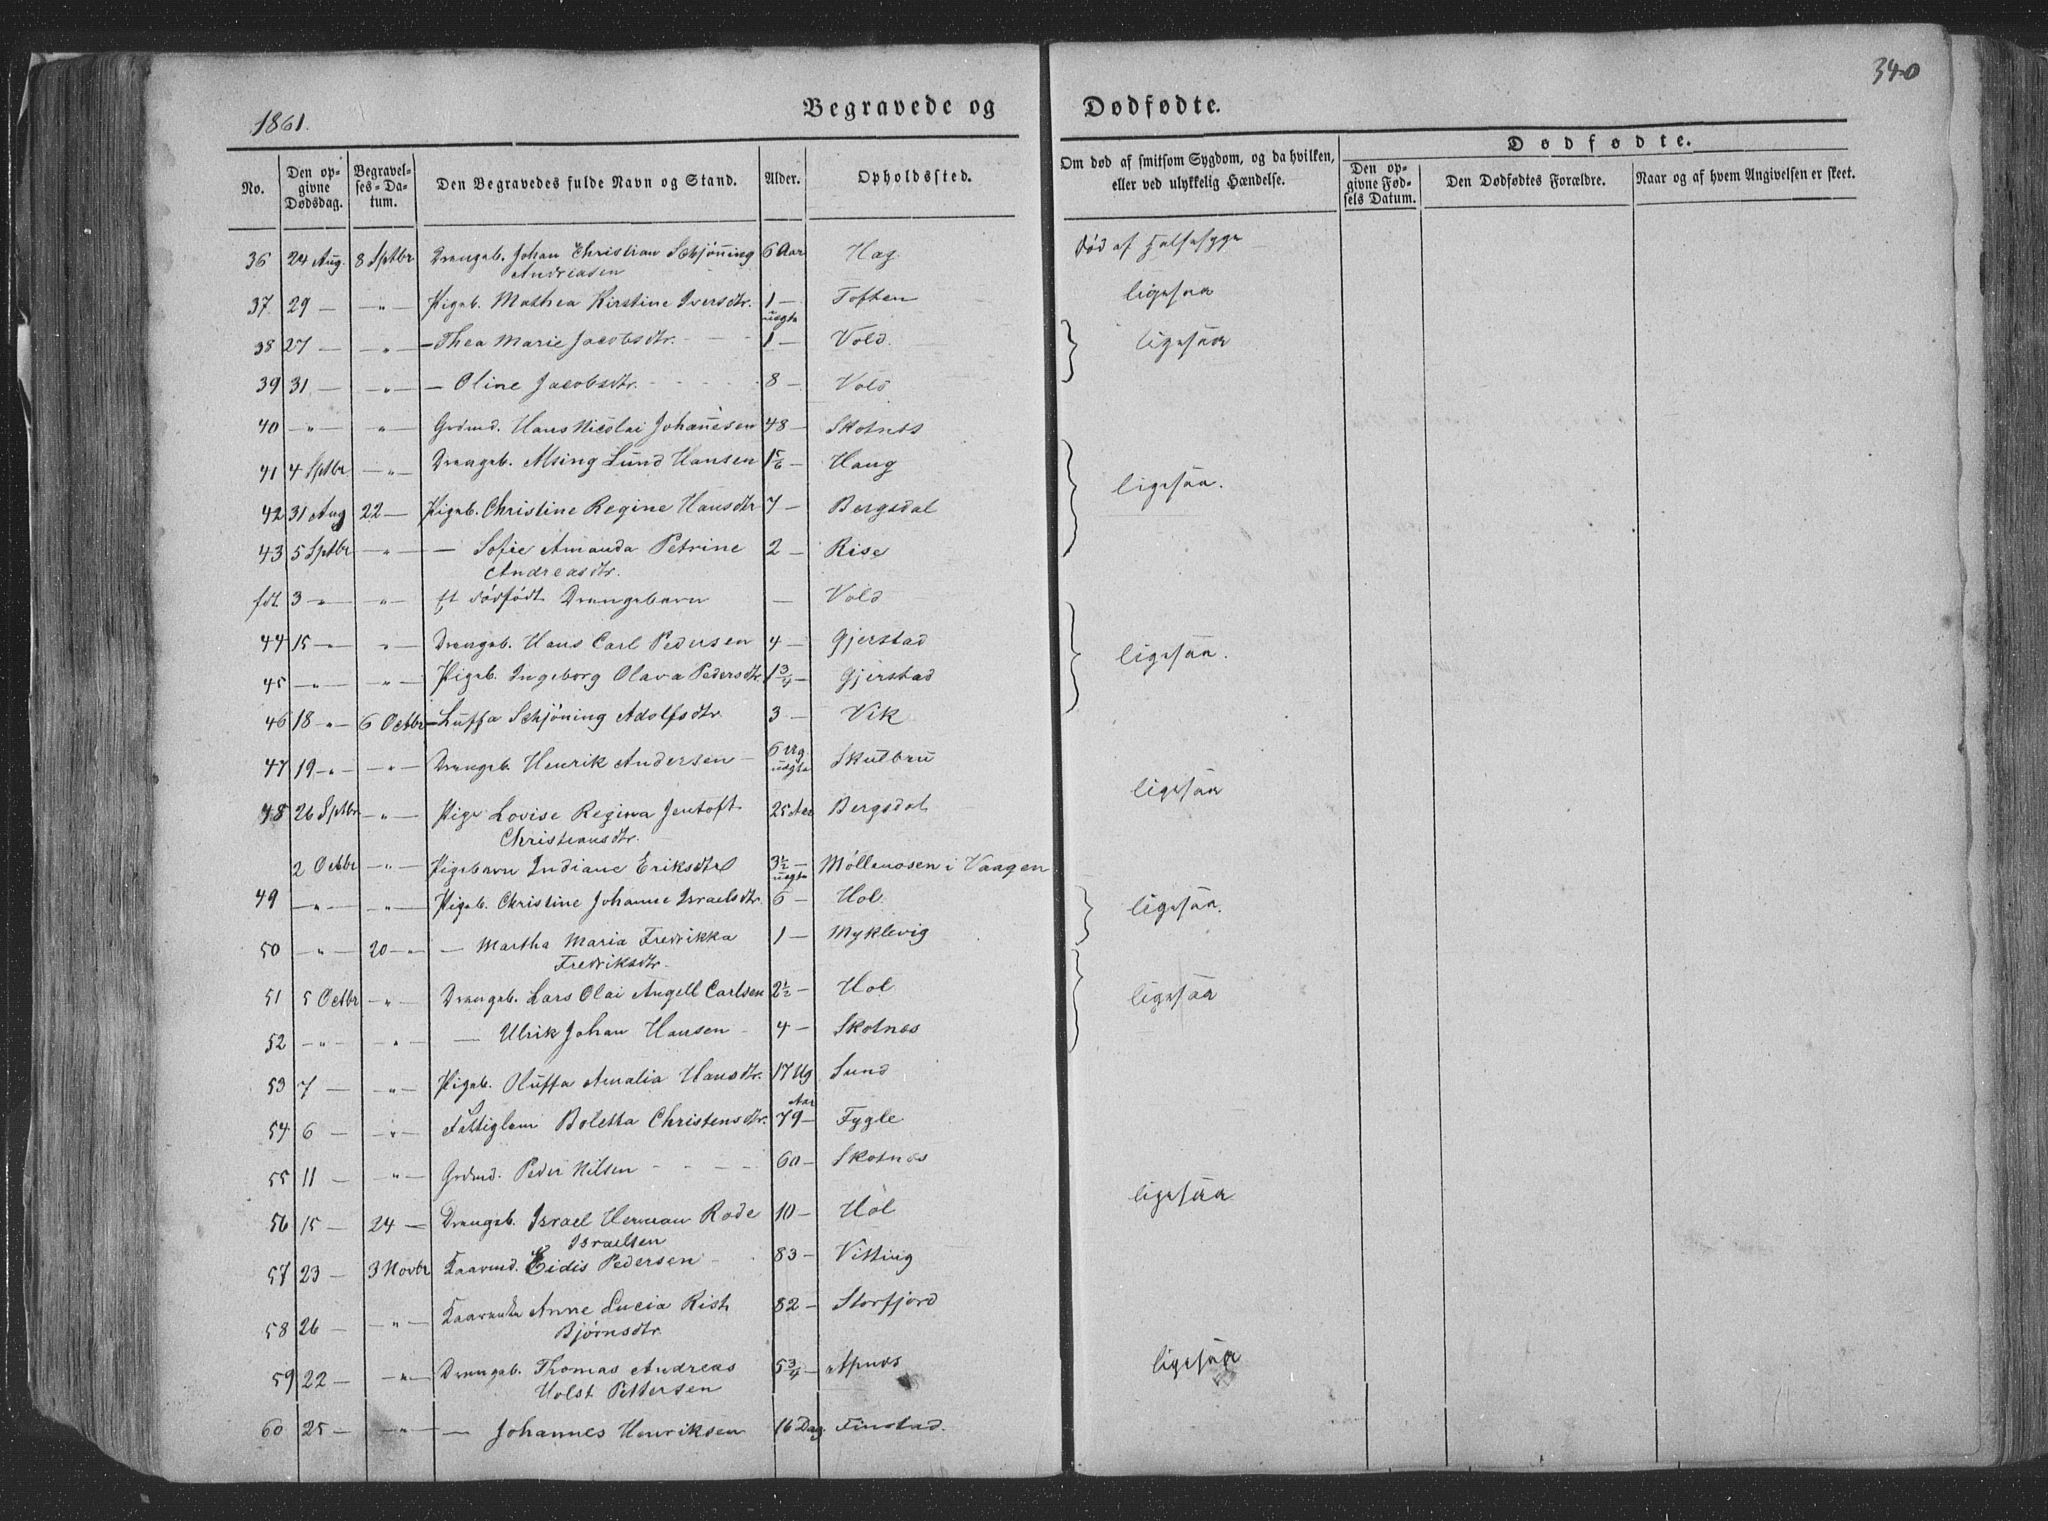 340
1861.
Begravede og Dødfødte.
No.
Den opgivne Dødsdag.
Begravelses-Datum.
Den Begravedes fulde Navn og Stand.
Alder.
Opholdssted.
Om død af smitsom Sygdom, og da hvilken, eller ved ulykkelig Hændelse.
Dødfødte.
Den opgivne Fødsels Datum.
Den Dødfødtes Forældre.
Naar og af hvem Angivelsen er skeet.
36 24 Aug. 8 Sptbr Drengeb. Johan Christian Schjöning 6 Aar Hag. død af Halsesyge
Andreasen
37 29 — " — Pigeb. Mathea Kirstine Iversdtr. 1 — Toften ligesaa
uægte
38 27 — " — — Thea Marie Jacobsdtr. 1 — Vold. ligesaa
39 31 — — " — — Oline Jacobsdtr. 8 — Vold
40 — " — — " — Grdmd. Hans Nicolai Johanesen 48 — Skotnes
41 4 Sptbr — " — Drengeb. Alsing Lund Hansen 1 5/6 — Haug ligesaa.
42 31 Aug 22 — Pigeb. Christine Regine Hansdtr 7 — Bergsdal
43 5 Sptbr — " — — Sofie Amanda Petrine 2 — Rise
Andreasdtr.
fdt. 3 — " — — " — Et dödfödt Drengebarn — Vold
44 15 — " — " — Drengeb. Hans Carl Pedersen 4 — Gjerstad ligesaa.
45 — " — — " — Pigeb. Ingeborg Olava Pedersdtr. 1 3/4 — Gjerstad
46 18 — " — 6 Octbr — Luffa Schjöning Adolfsdtr. 3 — Vik
47 19 — " — — " — Drengeb. Henrik Andersen — 6 Ug. Skulbru
uægte
ligesaa
48 26 Sptbr — " — Pige Lovise Regina Jentoft 25 Aar Bergsdal
Christiansdtr.
2 Octbr — " — Pigebarn Indiane Eriksdtr 3 1/2 — Möllenosen i Vaagen
uægte
49 — " — — " — Pigeb. Christine Johanne Israelsdtr. 6 — Hol. ligesaa.
50 — " — 20 — " — — Martha Maria Fredrikka 1 — Myklevig
Fredriksdtr.
51 5 Octbr — " — Drengeb. Lars Olai Angell Carlsen 2 1/2 — Hol ligesaa
52 — " — " — — Ulrik Johan Hansen — 4 — Skotnes
53 7 — " — Pigeb. Oluffa Amalia Hansdtr. 17 Ug Sund
Aar
54 6 — — " — Fattiglem Boletta Christensdtr. 79 — Fygle
55 11 — — " — Grdmd. Peder Nilsen 60 — Skotnes
ligesaa
56 15 — 24 — Drengeb. Israel Herman Rode 10 — Hol
Israelsen
57 23 — 3 Novbr Kaarmd. Eidis Pedersen 83 — Vitting
58 26 — — " — Kaarenke Anne Lucia Rist 82 — Storfjord
Bjørnsdtr.
59 22 — — " — Drengeb. Thomas Andreas 5 3/4 — Apnes ligesaa
Holst Pettersen
60 25 — — " — — Johannes Henriksen 16 Dag. Finstad.